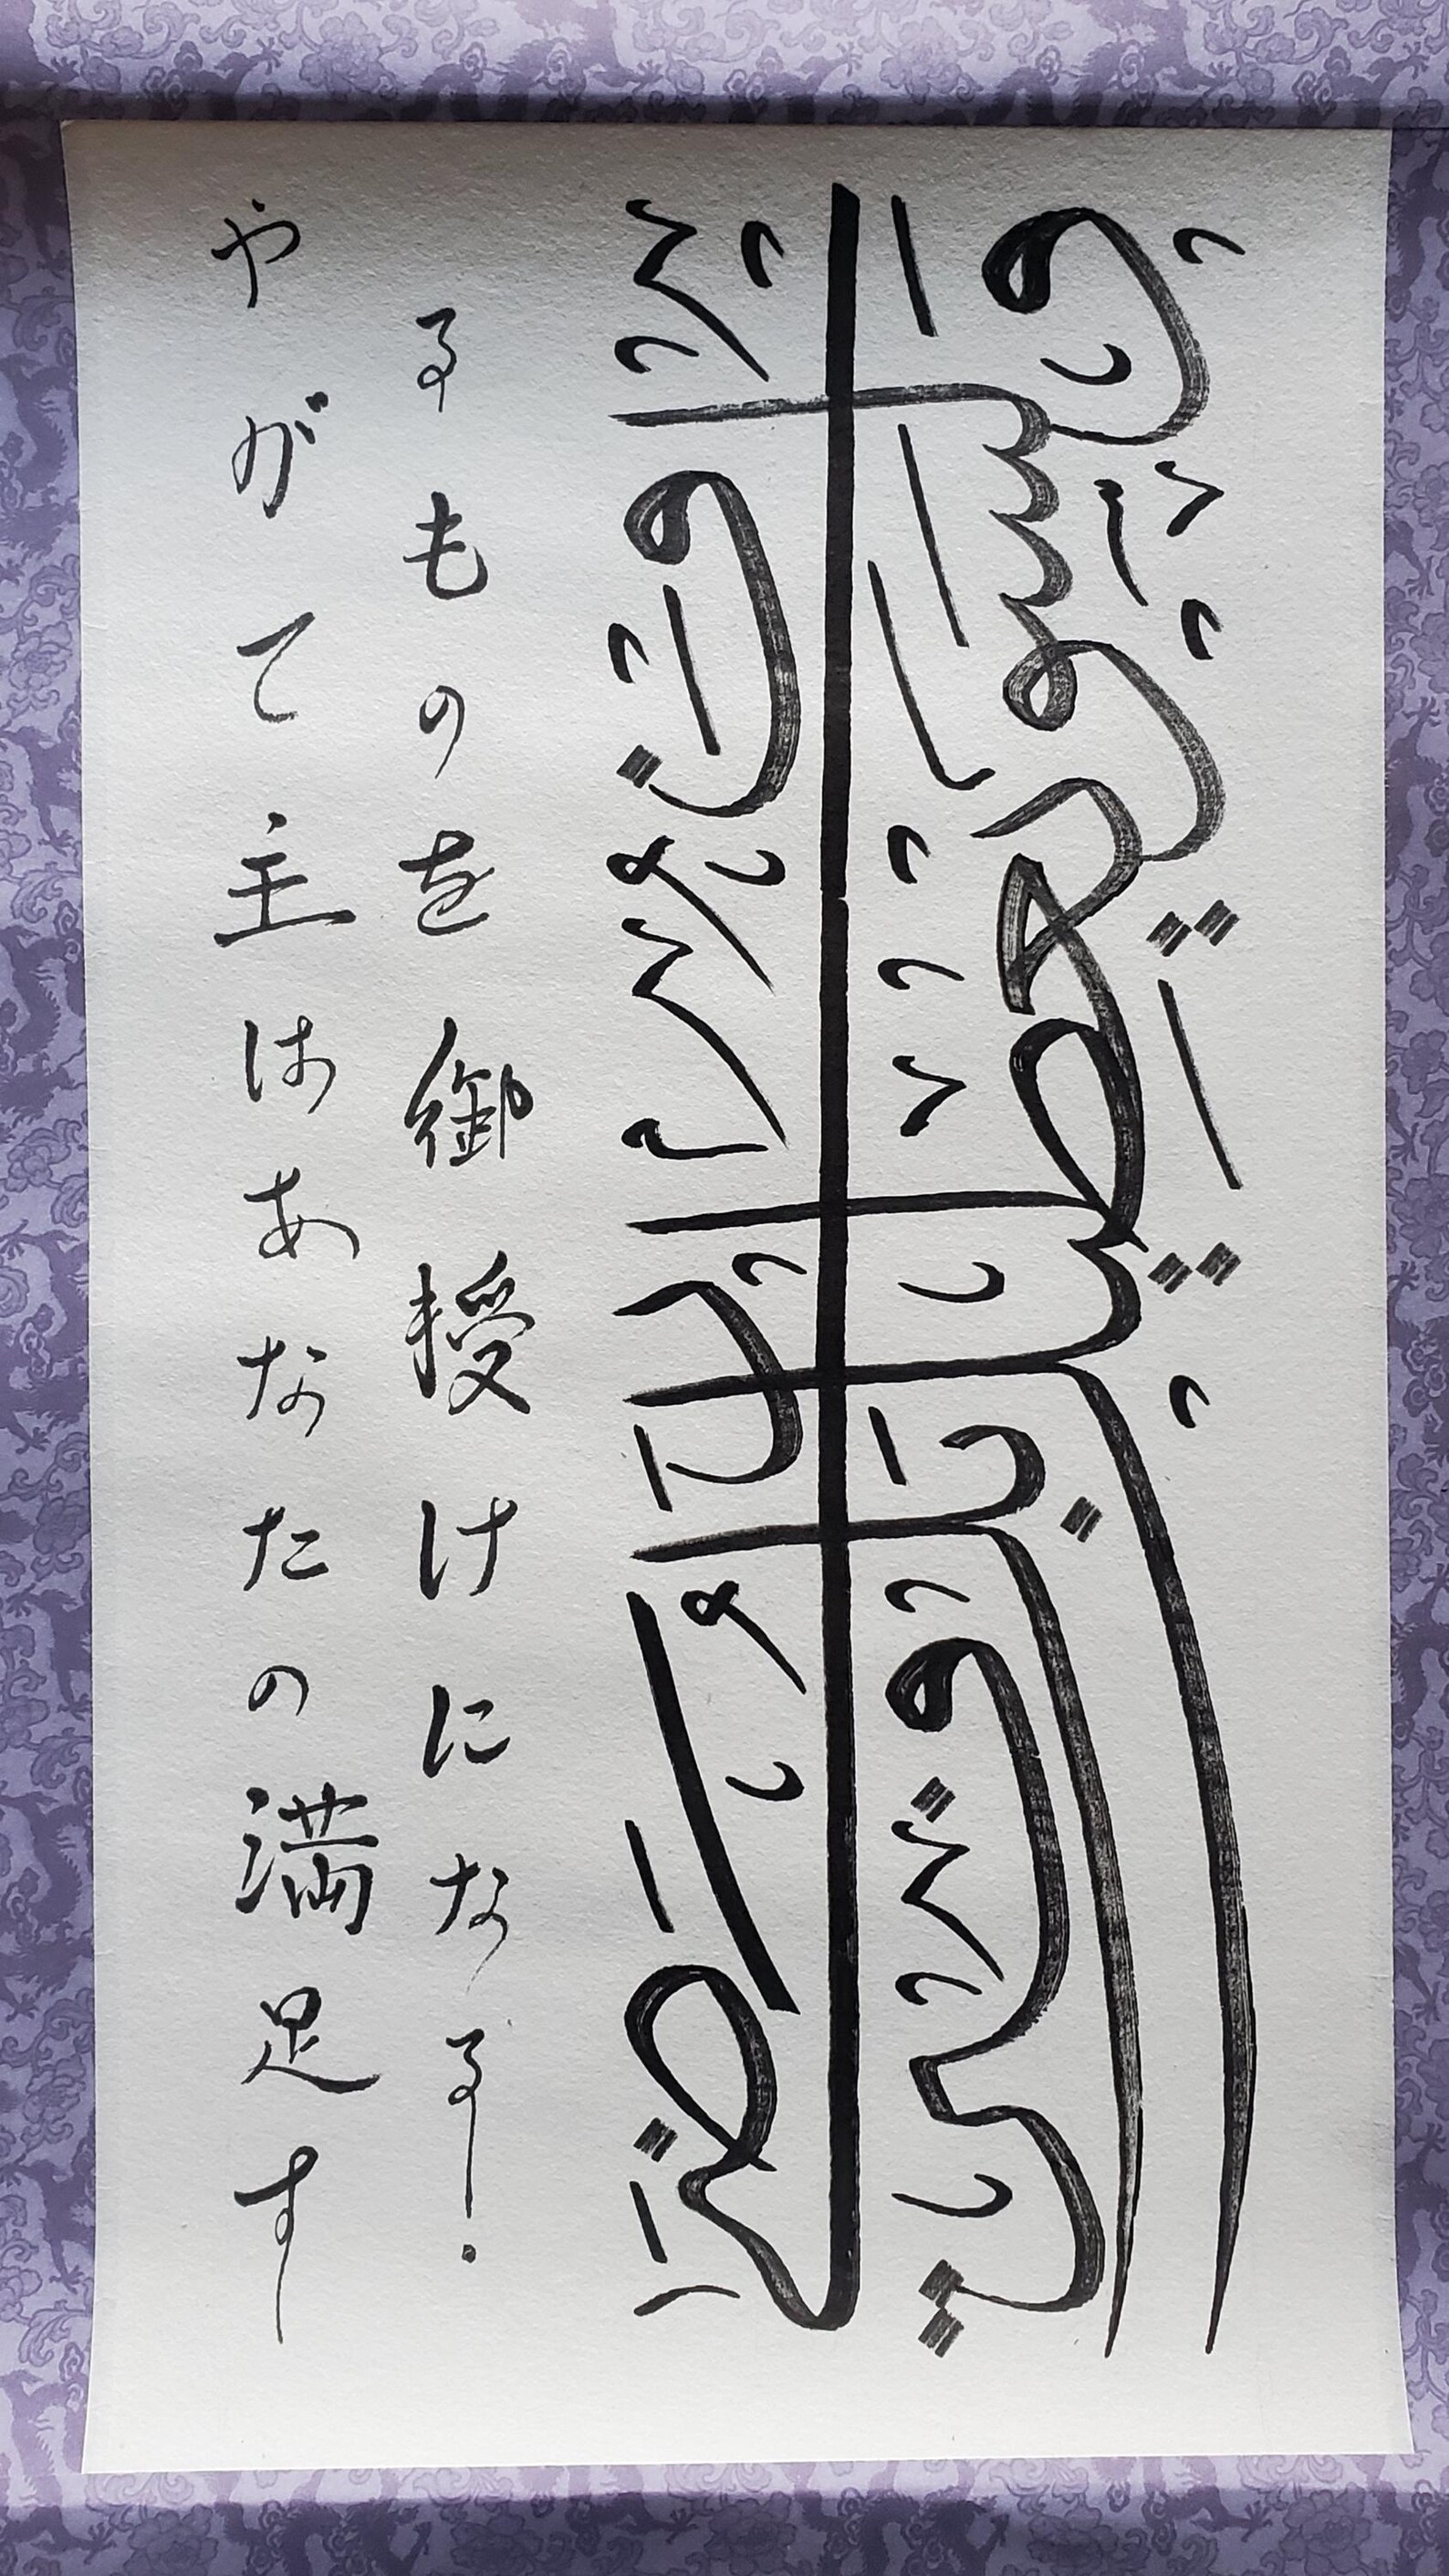 やがて主はあなたの満足す
るものを御授けになる.
وَلَسَوْفَ يُعْطِيكَ رَبُّكَ فَتَرْضَىٰ